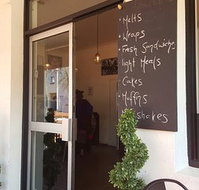 • Melts
• Wraps
• Fresh Sandwiches
light Meals
• Cakes
• Muffins
shakes